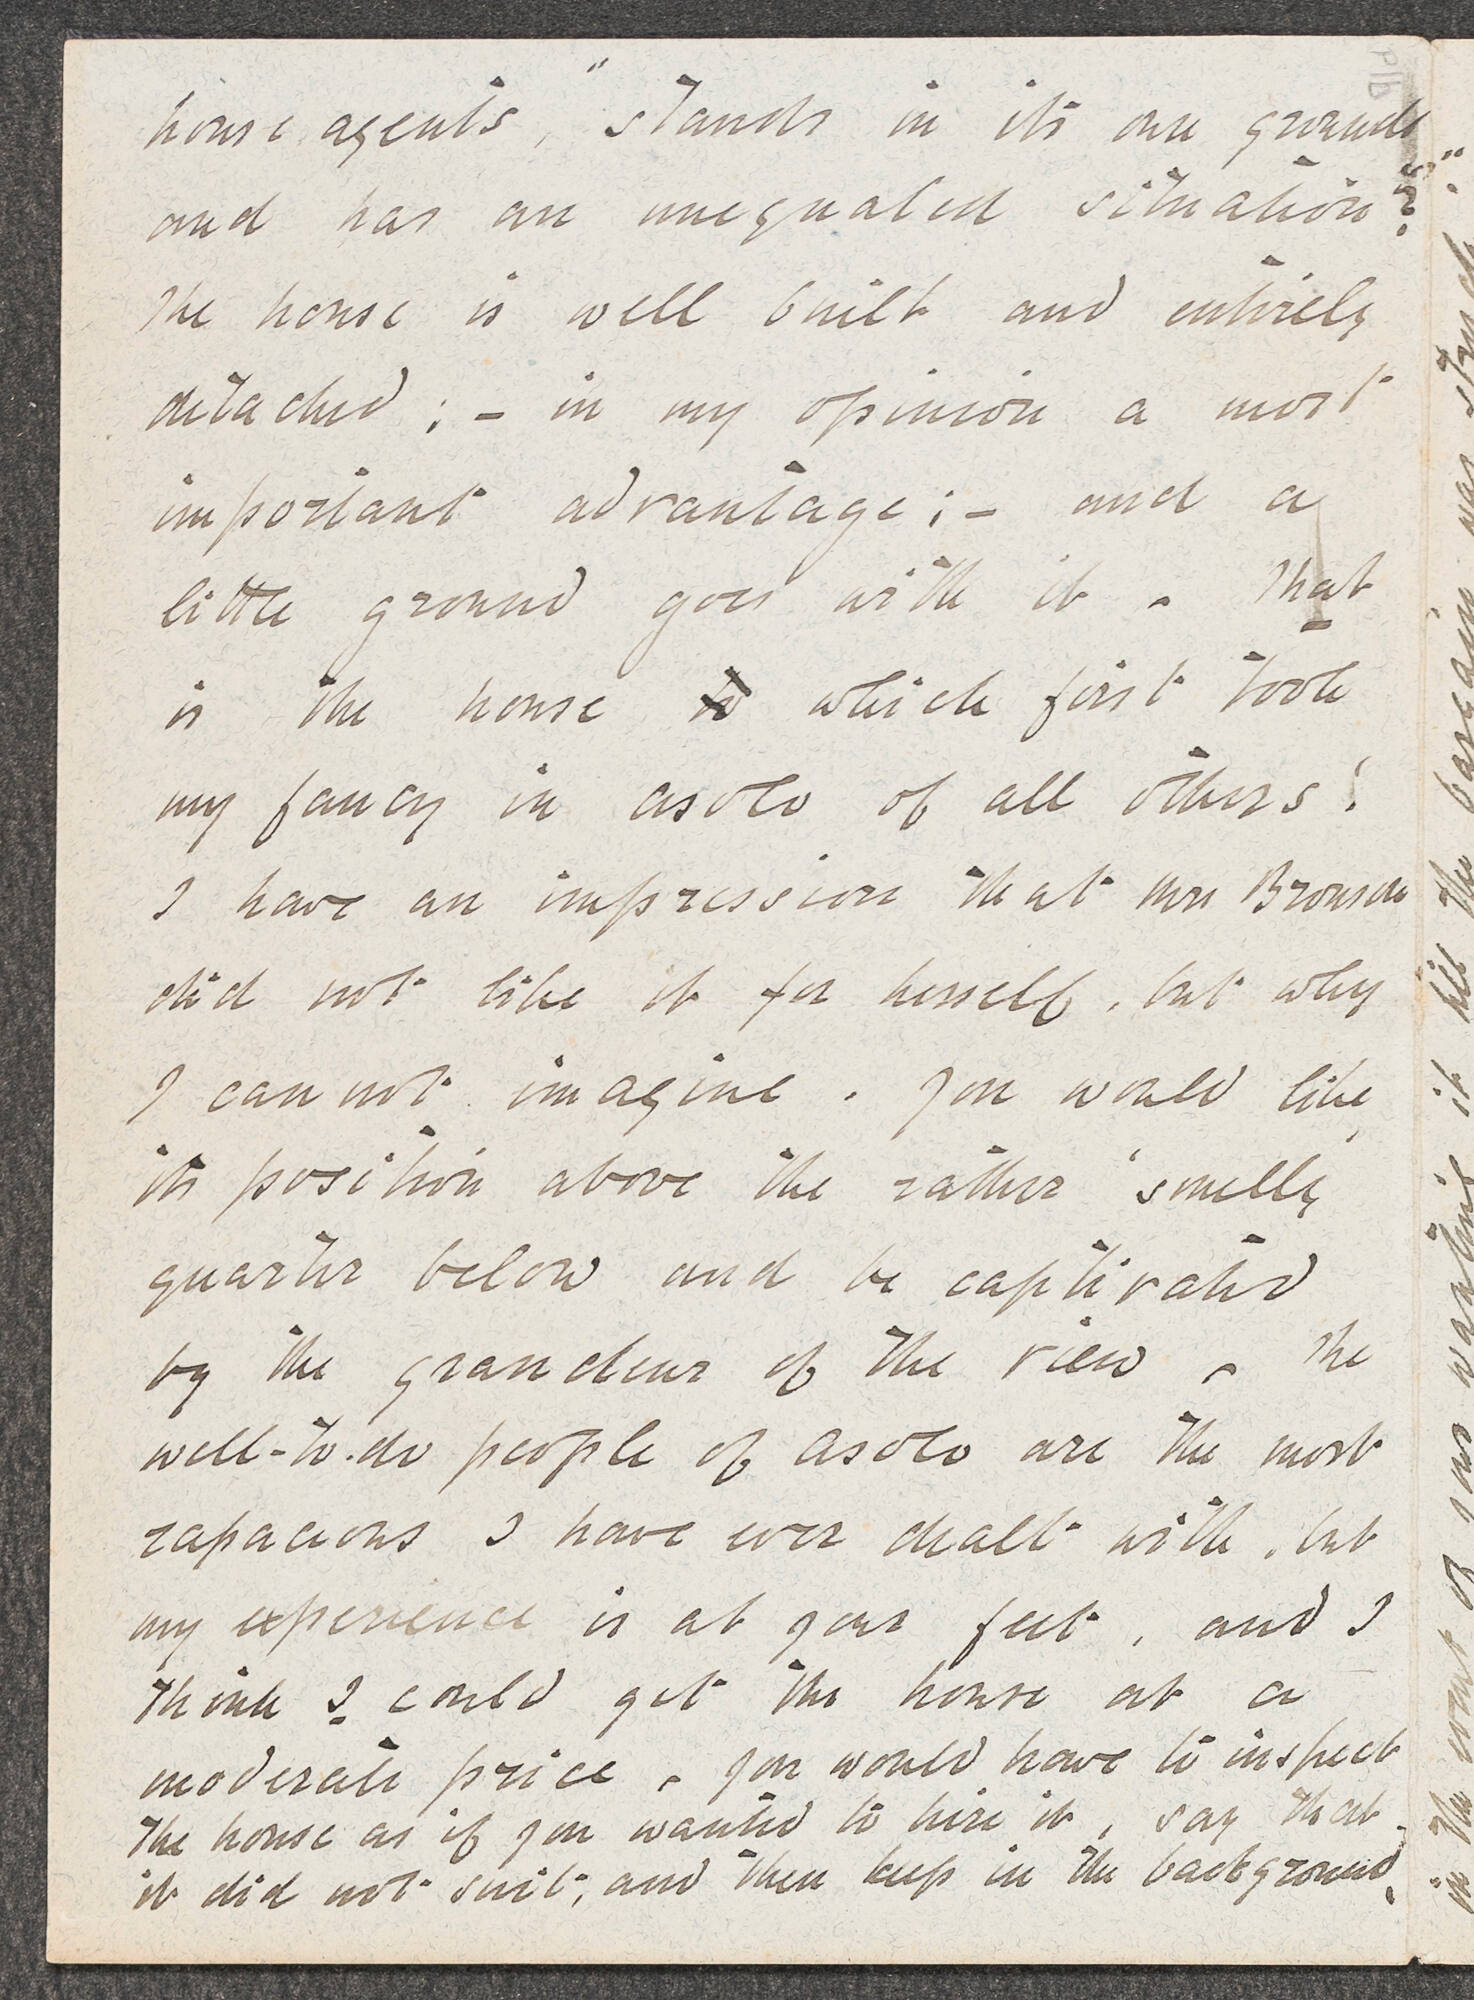 house agents, "stands in its own grounds
and has an unequaled situation".
The house is well built and entirely
detached; - in my opinion a most
important advantage; - and a
little ground goes with it. That
is the house which first took
my fancy in Asolo of all others!
I have an impression that Mrs Bronson
did not like it for herself, but why
I cannot imagine. You would like
its position above the rather 'smelly'
quarter below and be captivated
by the grandeur of the view. The
well-to-do people of Asolo are the most
rapacious I have ever dealt with, but
my experience is at your feet, and I
think I could get the house at a
moderate price. You would have to inspect
the house as if you wanted to hire it, say that
it did not suit, and then keep in the background,
in the event of your wanting it till the bargain was struck."